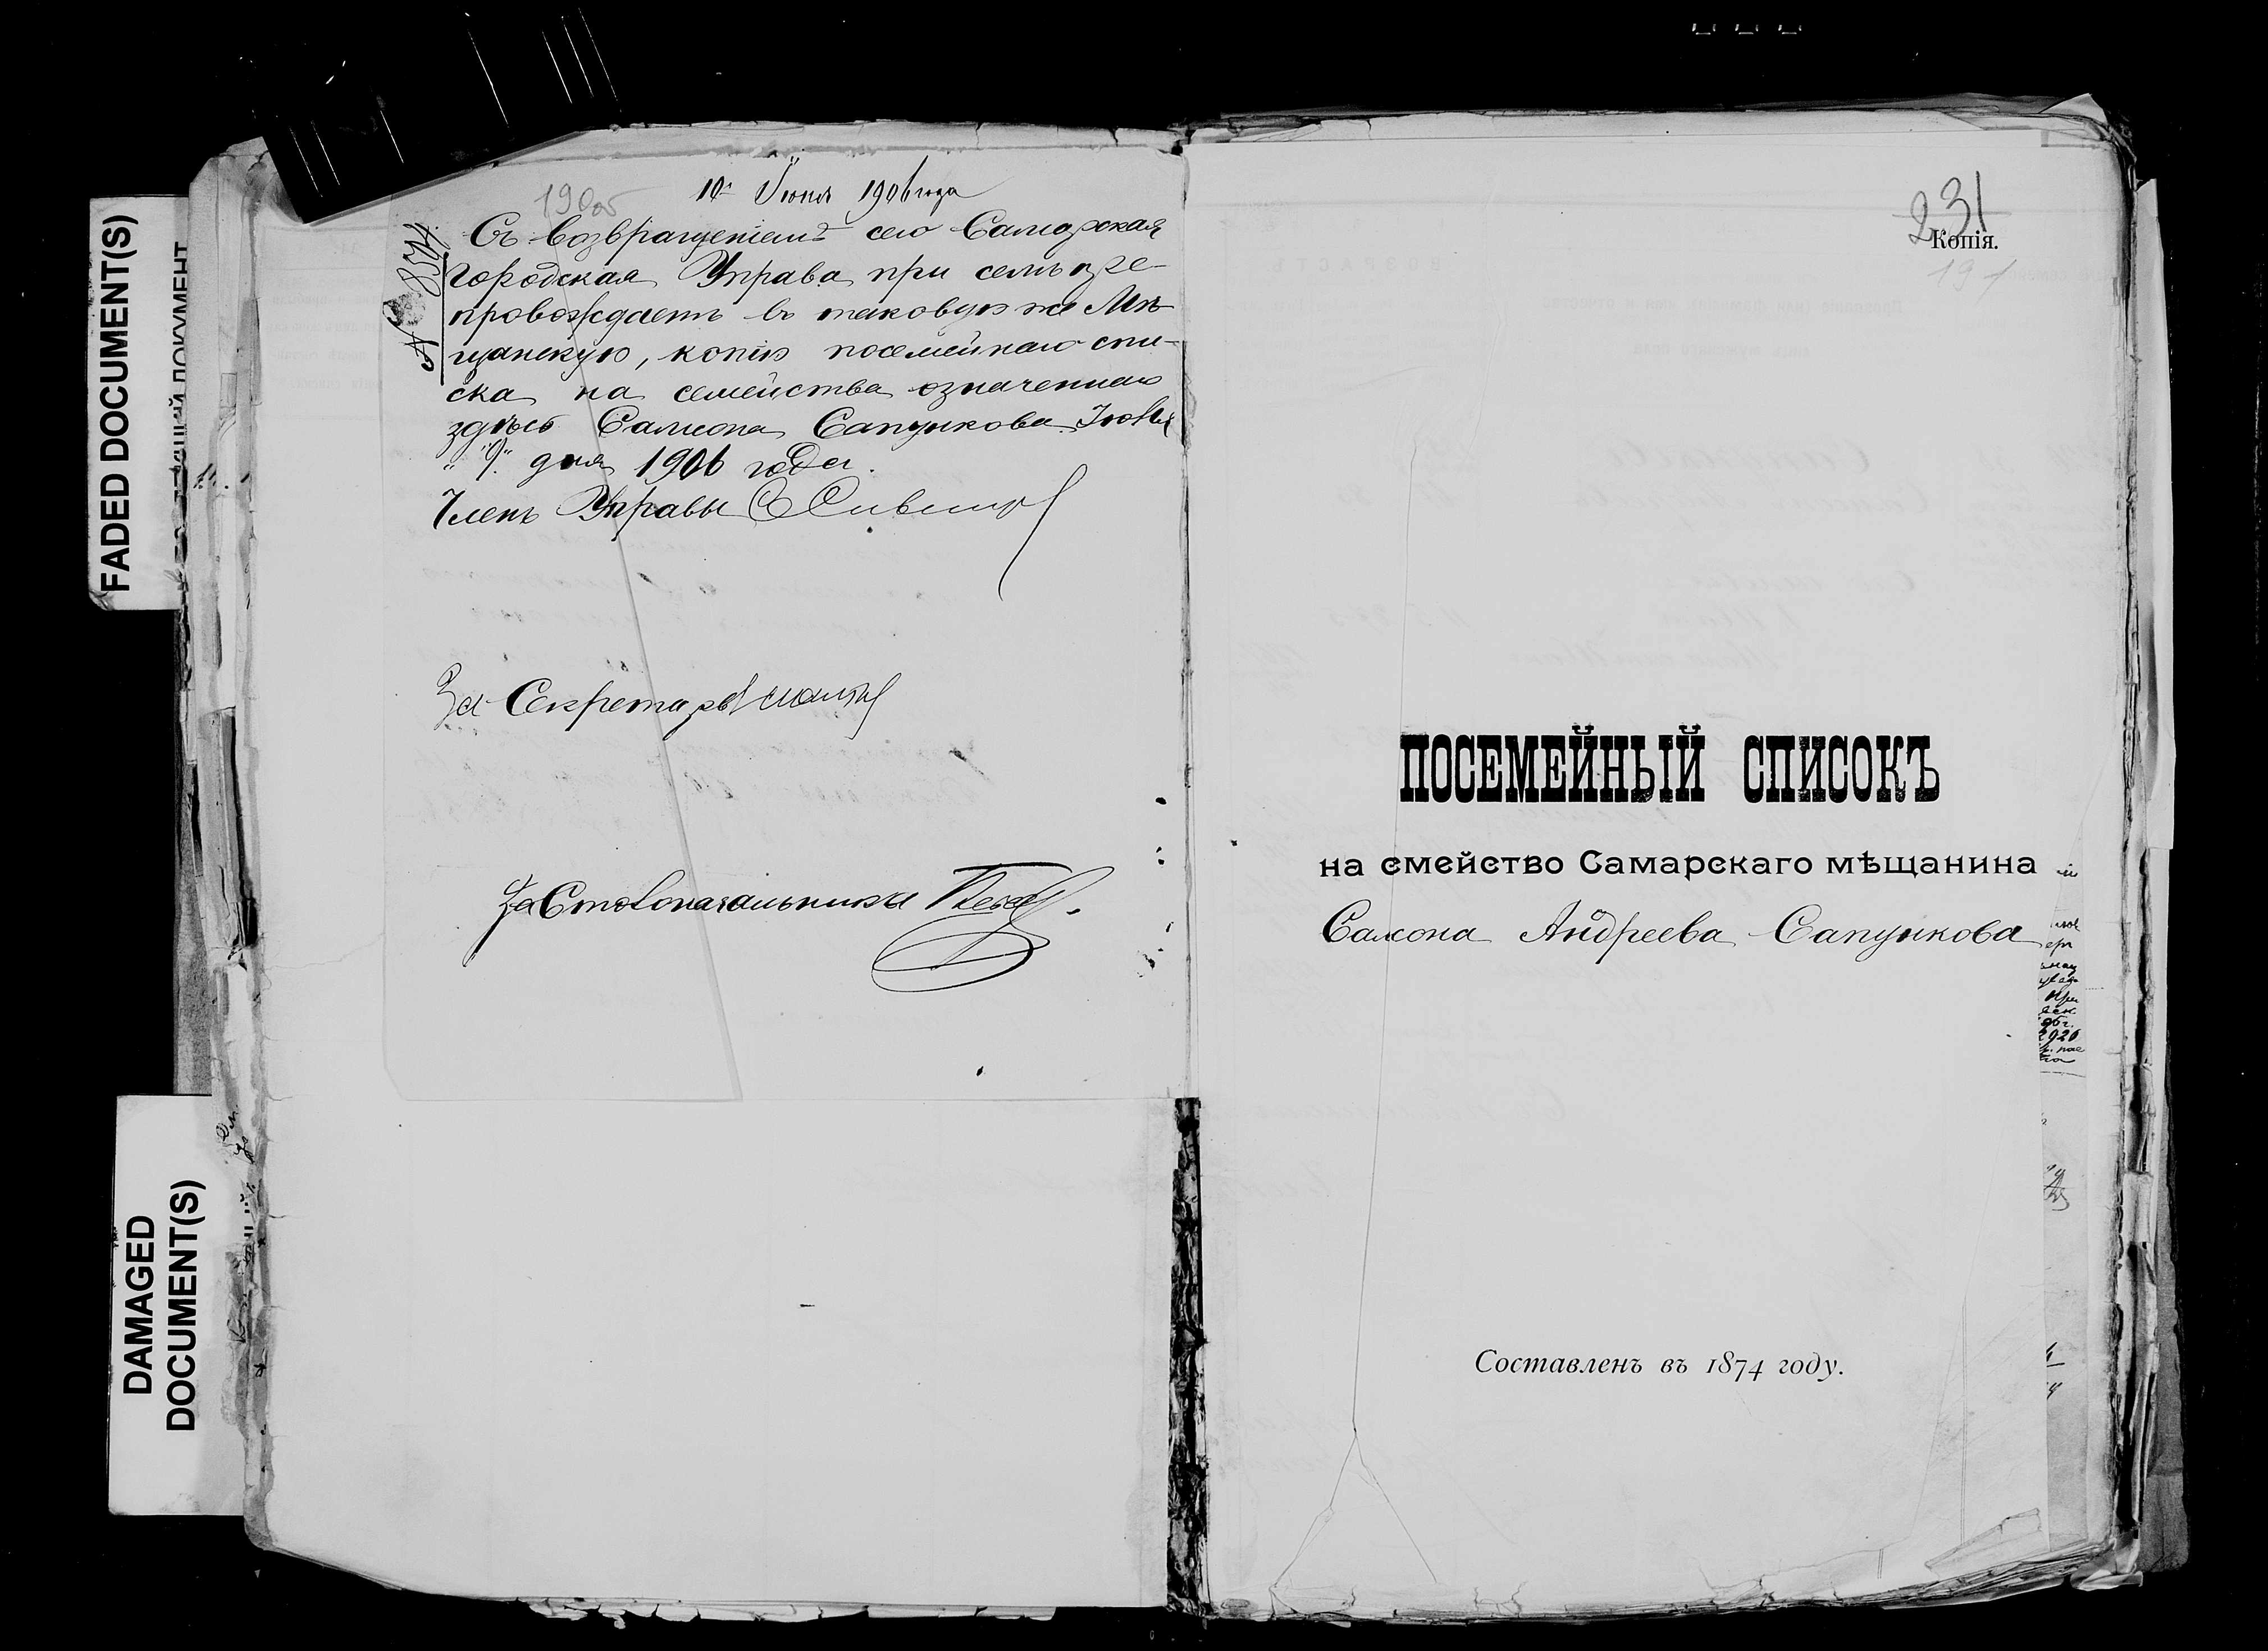 FADED DOCUMENT(S)
DAMAGED
DOCUMENT(S)
190об
10 Іюня 1906 года
Съ возвращеніемъ сего Самарская
Городская Управа при семъ пре-
провождаетъ въ таковую же Мѣ-
щанскую, копію посемейнаго спи-
ска на семейства означеннаго
здѣсь Самсона Сапункова. Іюня
"9" дня 1906 года.
Членъ Управы
За Секретаря
За Столоначальника
231
Копія.
191
ПОСЕМЕЙНЫЙ СПИСОКЪ
на смейство Самарскаго мѣщанина
Самсона Андреева Сапункова
Составленъ въ 1874 году.